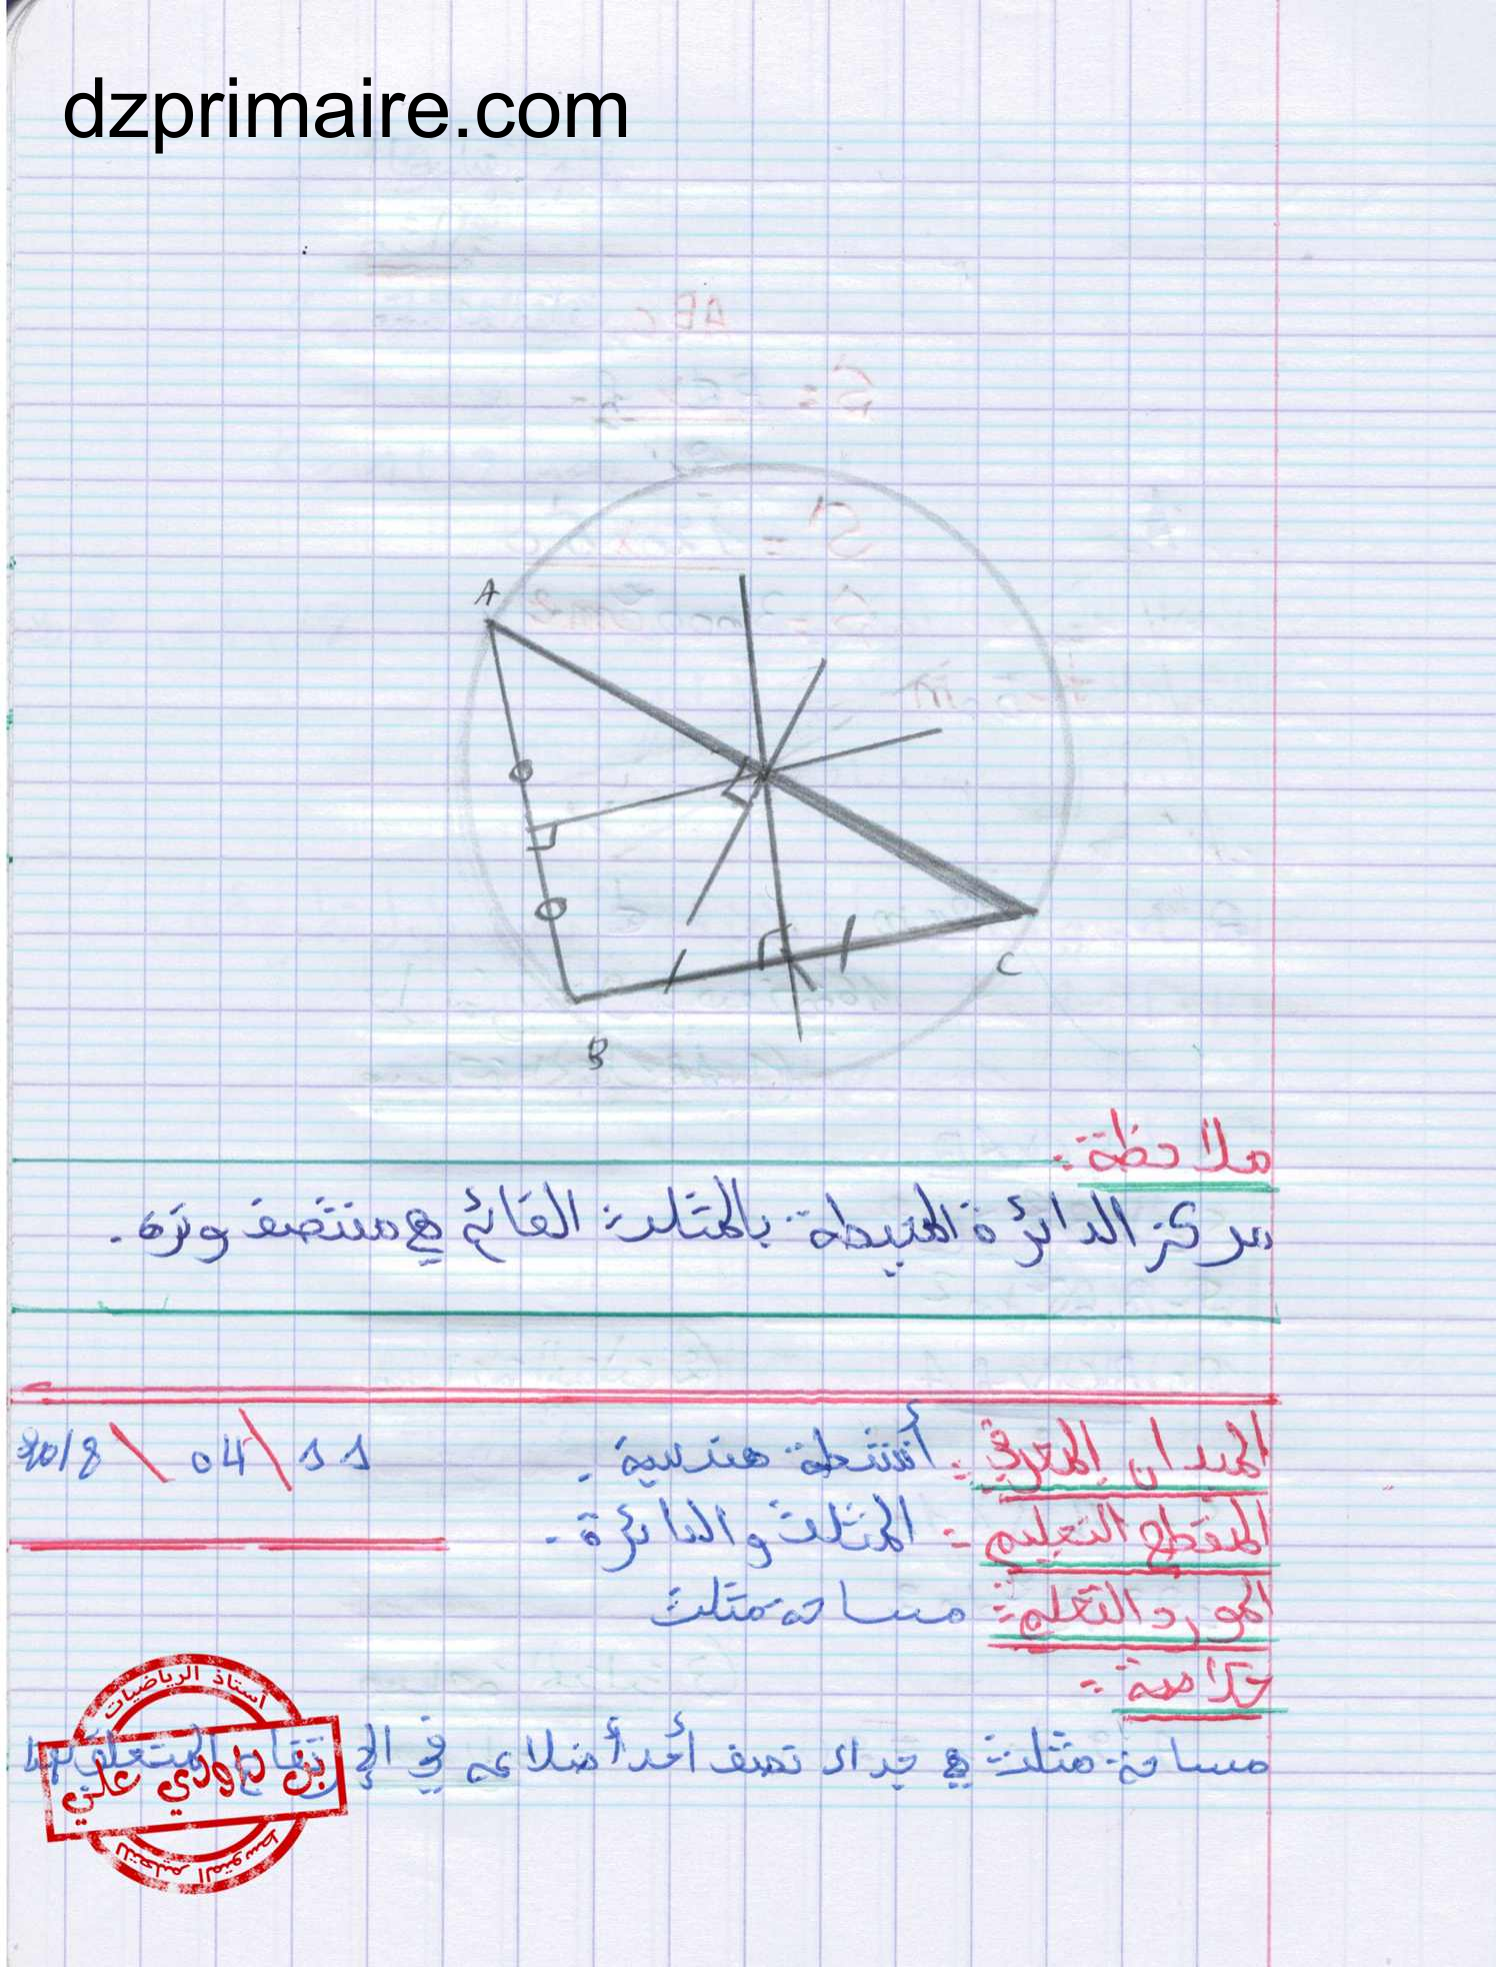 dzprimaire.com
A
B
C
ملاحظة:
مركز الدائرة المحيطة بالمثلث القائم هي منتصف وتره.
الميدان المعرفي: أنشطة هندسية.
11 \ 04 \ 2018
المقطع التعليمي: المثلث والدائرة.
المورد التعلمي: مساحة مثلث
خلاصة:
مساحة مثلث هي جداء نصف أحد أضلاعه في الإرتفاع المتعلق بهذا
أستاذ الرياضيات
بن داودي علي
للتعليم المتوسط